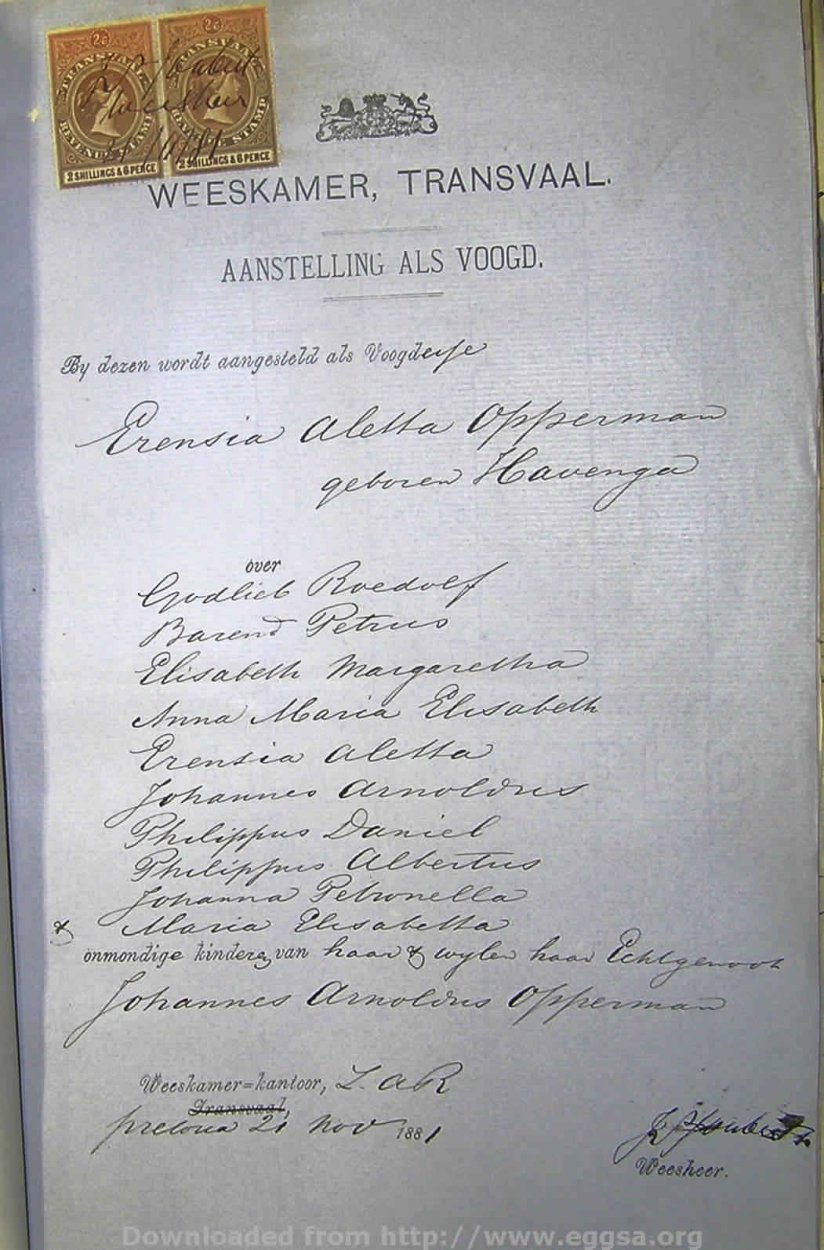 2/6 2/6
TRANSVAAL TRANSVAAL
Joubert
Weesheer
REVENUE STAMP REVENUE STAMP
2 SHILLINGS & 6 PENCE 2 SHILLINGS & 6 PENCE
WEESKAMER, TRANSVAAL.
AANSTELLING ALS VOOGD.
By dezen wordt aangesteld als Voogdesse
Erensia Aletta Opperman
geboren Havenga
over
Godlieb Roedolf
Barend Petrus
Elisabeth Margaretha
Anna Maria Elisabeth
Erensia Aletta
Johannes Arnoldus
Philippus Daniel
Philippus Albertus
Johanna Petronella
& Maria Elisabetta
onmondige kinderen van haar & wylen haar Echtgenoot
Johannes Arnoldus Opperman
Weeskamer=kantoor, Z. A R
Transvaal,
pretoria 21 Nov 1881
Joubert
Weesheer.
Downloaded from http://www.eggsa.org